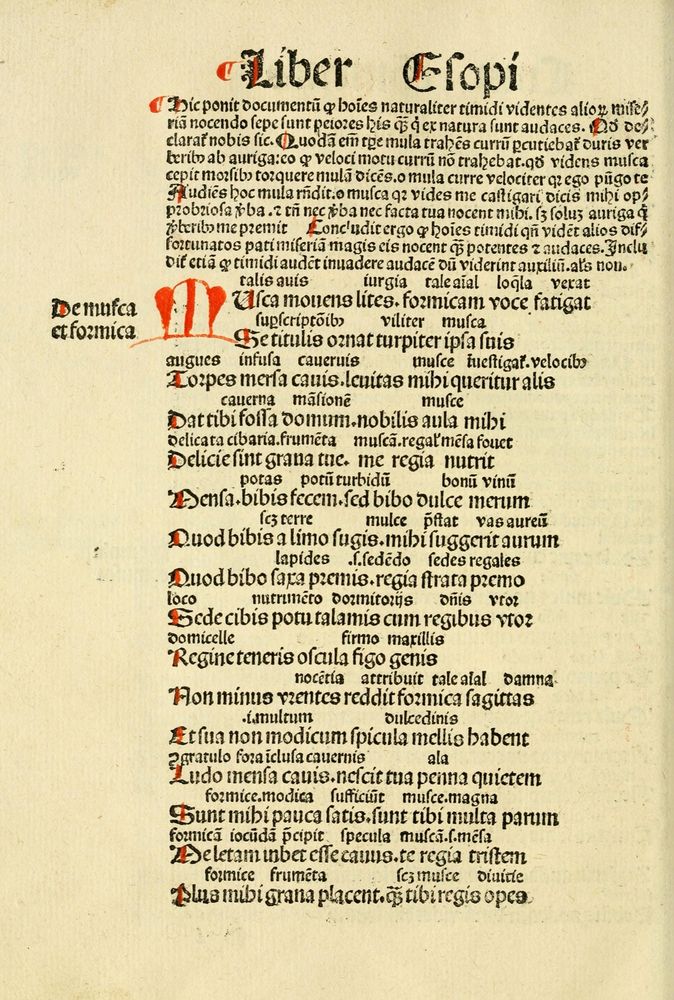 ¶ Liber Esopi
¶ Hic ponit documentū ꝙ hoīes naturaliter timidi videntes alioꝝ mise⸗
riā nocendo sepe sunt peiores his q̄ꝫ q̇ ex natura sunt audaces. Qḋ de⸗
claraṫ nobis sic. Quodā eīm tꝑe mula trahēs currū ꝑcutiebaṫ duris ver
beribꝰ ab auriga: eo ꝙ veloci motu currū nō trahebat. qḋ videns musca
cepit morsibꝰ torquere mulā dicēs. o mula curre velociter qꝛ ego pūgo te
Audiēs hoc mula rn̄dit. o musca qꝛ vides me castigari dicis mihi op⸗
probriosa ꝟba. ⁊ tn̄ nec ꝟba nec facta tua nocent mihi. sꝫ soluꝫ auriga q̇
ꝟberibꝰ me premit Concludit ergo ꝙ hoīes timidi qn̄ vidēt alios dif⸗
fortunatos pati miseriā magis eis nocent q̄ꝫ potentes ⁊ audaces. Inclu
diṫ etiā ꝙ timidi audēt inuadere audacē dū viderint auxiliū. als̄ non.
talis auis iurgia tale aīal loq̄la vexat
De musca
et formica
MUsca mouens lites. formicam voce fatigat
suꝑscriptōibꝰ viliter musca
Se titulis ornat turpiter ipsa suis
augues infusa cauernis musce īuestigaṫ. velocibꝰ
Torpes mersa cauis. leuitas mihi queritur alis
cauerna māsionē musce
Dat tibi fossa domum. nobilis aula mihi
delicata cibaria. frumēta muscā. regaĺ mēsa fouet
Delicie sint grana tue. me regia nutrit
potas potū turbidū bonū vinū
Mensa. bibis fecem. sed bibo dulce merum
scꝫ terre mulce p̄stat vas aureū
Quod bibis a limo sugis. mihi suggerit aurum
lapides .s. sedēdo sedes regales
Quod bibo saxa premis. regia strata premo
loco nutrimēto dormitorijs dn̄is vtor
Sede cibis potu talamis cum regibus vtor
domicelle firmo maxillis
Regine teneris oscula figo genis
nocētia attribuit tale aīal damna
Non minus vrentes reddit formica sagittas
.i. multum dulcedinis
Et sua non modicum spicula mellis habent
ꝯgratulo fora īclusa cauernis ala
Ludo mensa cauis. nescit tua penna quietem
formice. modica sufficiūt musce. magna
Sunt mihi pauca satis. sunt tibi multa parum
formicā iocūdā p̄cipit specula muscā. s. mēsa
Me letam iubet esse cauus. te regia tristem
formice frumēta scꝫ musce diuitie
Plus mihi grana placent. q̄ꝫ tibi regis opes